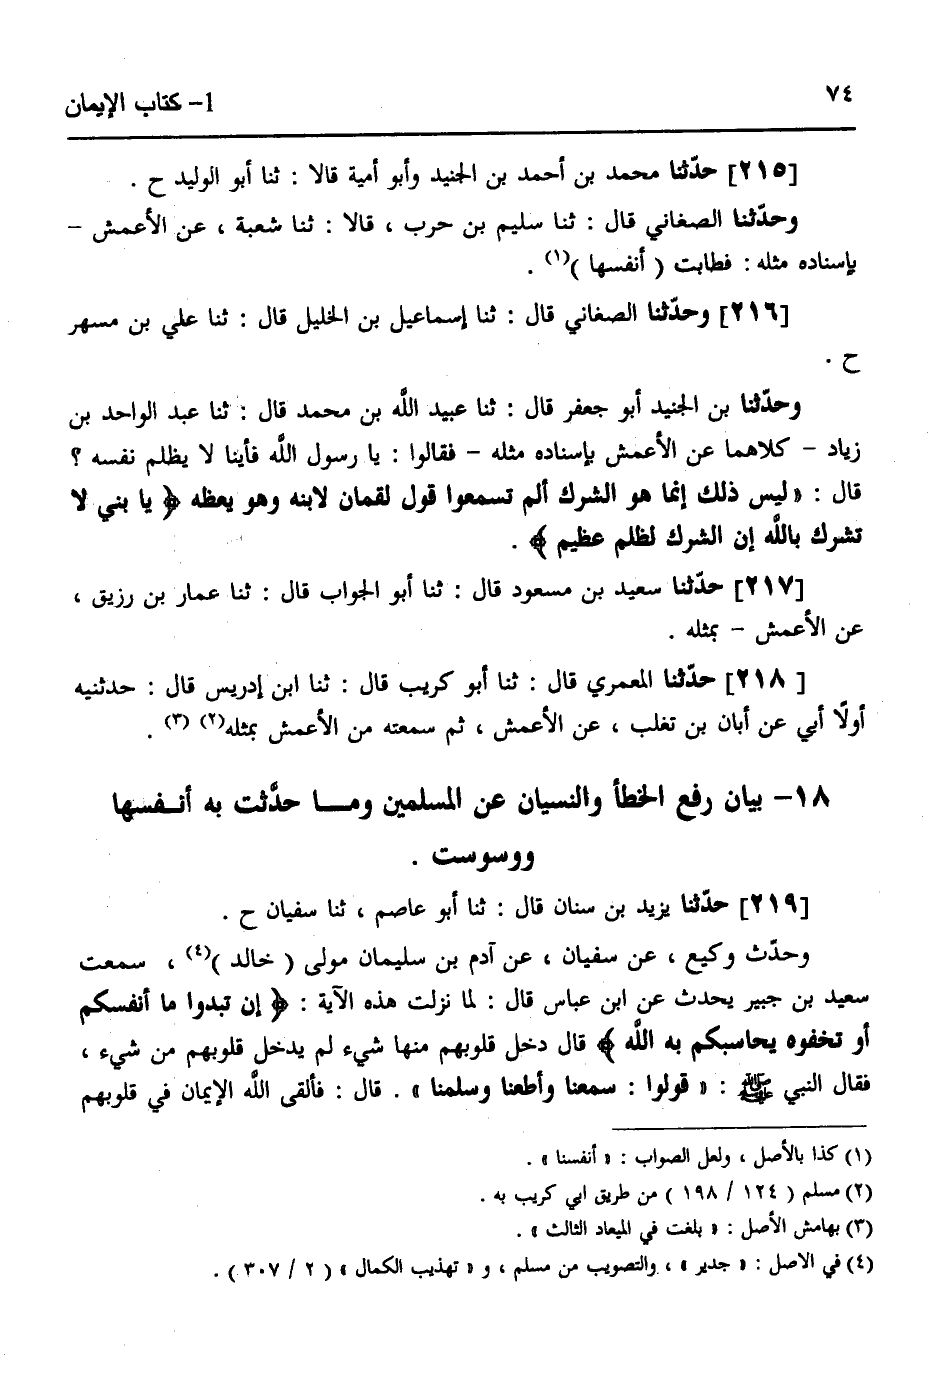 ٧٤
1- كتاب الإيمان
[٢١٥] حدّثنا محمد بن أحمد بن الجنيد وأبو أمية قالا : ثنا أبو الوليد ح .
وحدّثنا الصغاني قال : ثنا سليم بن حرب ، قالا : ثنا شعبة ، عن الأعمش –
بإسناده مثله : فطابت ( أنفسها )(١) .
[٢١٦] وحدّثنا الصغاني قال : ثنا إسماعيل بن الخليل قال : ثنا علي بن مسهر
ح .
وحدّثنا بن الجنيد أبو جعفر قال : ثنا عبيد الله بن محمد قال : ثنا عبد الواحد بن
زياد – كلاهما عن الأعمش بإسناده مثله – فقالوا : يا رسول الله فأينا لا يظلم نفسه ؟
قال : « ليس ذلك إنما هو الشرك ألم تسمعوا قول لقمان لابنه وهو يعظه ﴿ يا بني لا
تشرك بالله إن الشرك لظلم عظيم ﴾ .
[٢١٧] حدّثنا سعيد بن مسعود قال : ثنا أبو الجواب قال : ثنا عمار بن رزيق ،
عن الأعمش – بمثله .
[ ٢١٨] حدّثنا المعمري قال : ثنا أبو كريب قال : ثنا ابن إدريس قال : حدثنيه
أولًا أبي عن أبان بن تغلب ، عن الأعمش ، ثم سمعته من الأعمش بمثله(٢) (٣) .
١٨– بيان رفع الخطأ والنسيان عن المسلمين ومـــا حدَّثت به أنـفسها
ووسوست .
[٢١٩] حدّثنا يزيد بن سنان قال : ثنا أبو عاصم ، ثنا سفيان ح .
وحدّث وكيع ، عن سفيان ، عن آدم بن سليمان مولى ( خالد )(٤) ، سمعت
سعيد بن جبير يحدث عن ابن عباس قال : لما نزلت هذه الآية : ﴿ إن تبدوا ما أنفسكم
أو تخفوه يحاسبكم به الله ﴾ قال دخل قلوبهم منها شيء لم يدخل قلوبهم من شيء ،
فقال النبي ﷺ : « قولوا : سمعنا وأطعنا وسلمنا » . قال : فألقى الله الإيمان في قلوبهم
(١) كذا بالأصل ، ولعل الصواب : « أنفسنا » .
(٢) مسلم ( ١٢٤ / ١٩٨ ) من طريق ابي كريب به .
(٣) بهامش الأصل : « بلغت في الميعاد الثالث » .
(٤) في الاصل : « جدير » ، والتصويب من مسلم ، و « تهذيب الكمال » ( ٢ / ٣٠٧ ) .